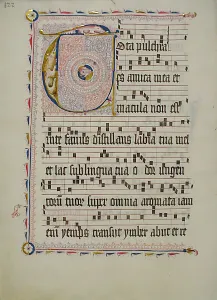 Tota pulchra
es amica mea et
macula non est
in te favus distillans labia tua mel
et lac sub lingua tua odor ungen
torum tuorum super omnia aromata iam
enim yemps transiit ymber abiit et re